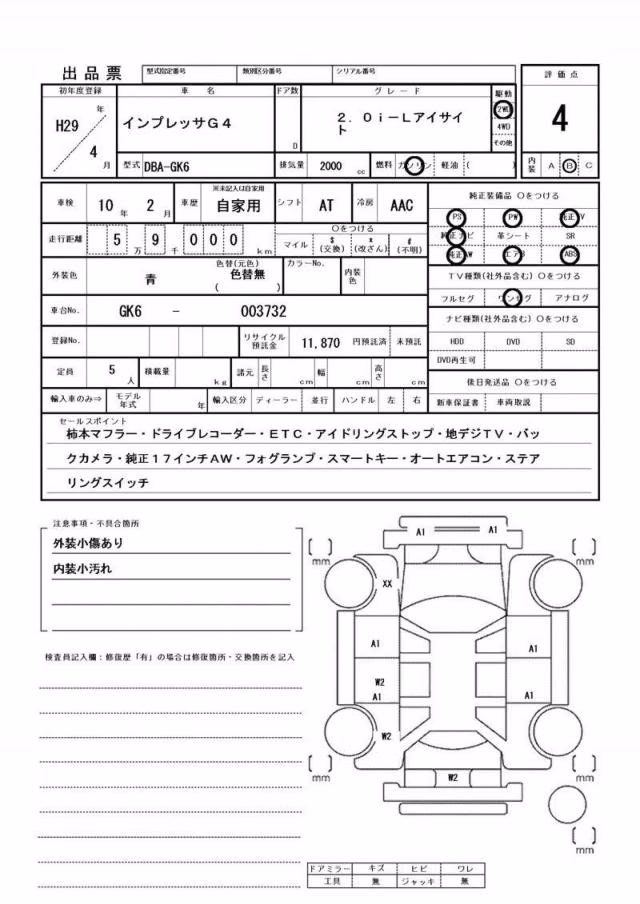 出品票
型式指定番号 類別区分番号 シリアル番号
評価点
初年度登録 車 名 ドア数 グレード 駆動
H29 年 4 月
インプレッサG4
D
2.0i-Lアイサイト
2WD
4WD
その他
4
型式 DBA-GK6 排気量 2000 cc 燃料 ガソリン ・ 軽油 ( ) 内装 A B C
車検 10 年 2 月 車歴 ※未記入は自家用 自家用 シフト AT 冷房 AAC
純正装備品 ○をつける
PS PW 純正TV
純正ナビ 革シート SR
純正AW エアB ABS
走行距離 5 万 9 千 0 0 0 km
○をつける
マイル $(交換) x(改ざん) #(不明)
TV種類(社外品含む) ○をつける
フルセグ ワンセグ アナログ
外装色 青 色替(元色) 色替無 ( ) カラーNo. 内装色
車台No. GK6 - 003732
ナビ種類(社外品含む) ○をつける
HDD DVD SD
DVD再生可
登録No. リサイクル預託金 11,870 円預託済 未預託
定員 5 人 積載量 kg 諸元 長さ cm 幅 cm 高さ cm
後日発送品 ○をつける
新車保証書 車両取説
輸入車のみ⇒ モデル年式 年 輸入区分 ディーラー ・ 並行 ハンドル 左 右
セールスポイント
柿本マフラー・ドライブレコーダー・ETC・アイドリングストップ・地デジTV・バッ
クカメラ・純正17インチAW・フォグランプ・スマートキー・オートエアコン・ステア
リングスイッチ
注意事項・不具合箇所
外装小傷あり
内装小汚れ
検査員記入欄:修復歴「有」の場合は修復箇所・交換箇所を記入
A1 A1
mm mm
XX
A1 A1
W2
A1 A1
W2
mm mm
W2
mm
ドアミラー キズ ヒビ ワレ
工具 無 ジャッキ 無